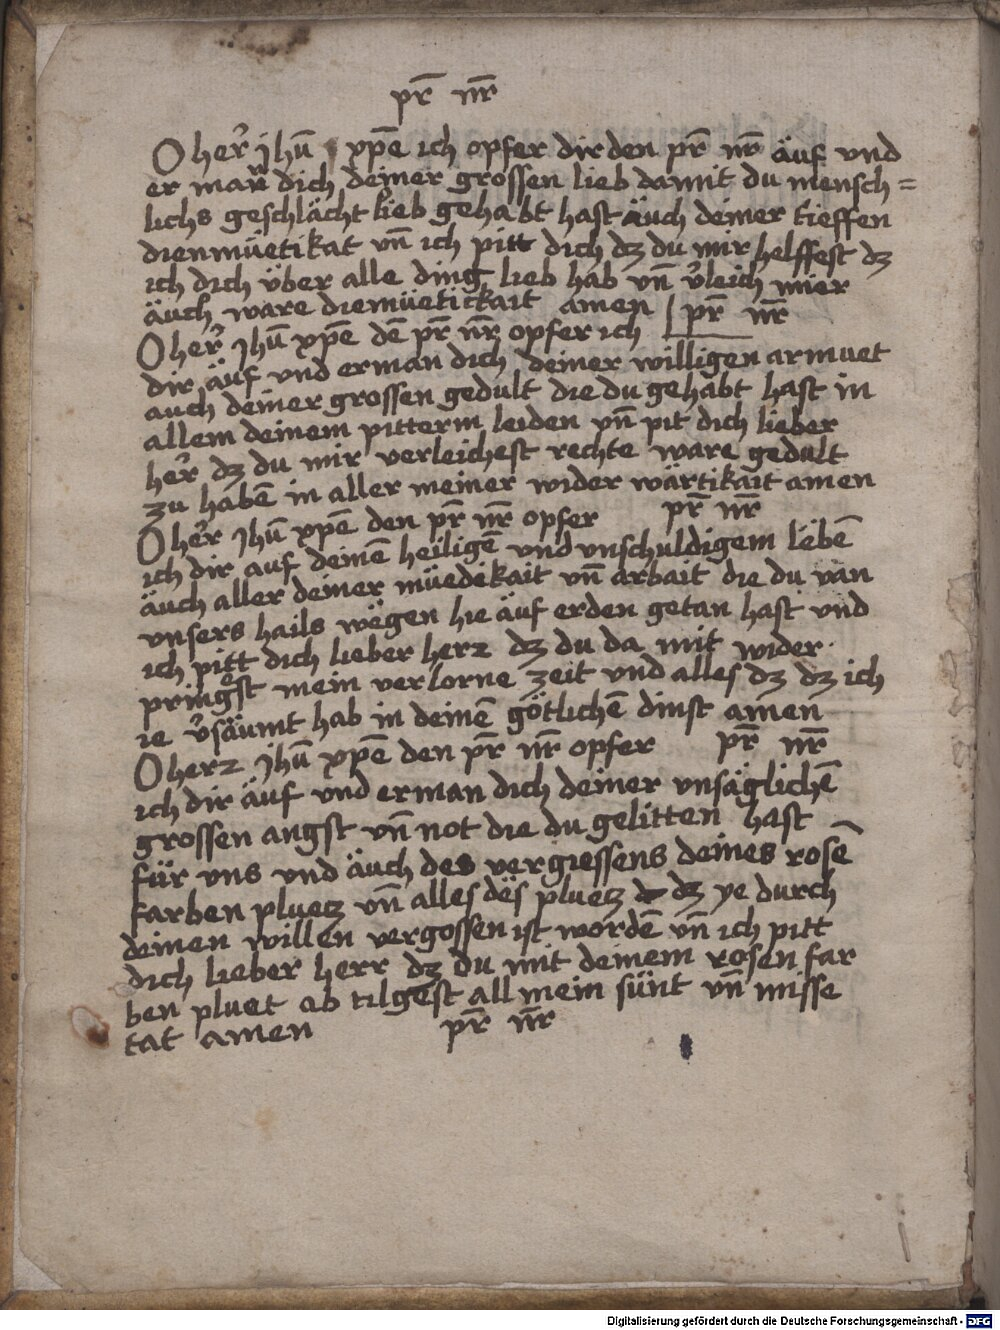 pr̄ nr̄
O her̃ jhū xp̄e ich opfer dir den pr̄ nr̄ äuf und
er man dich deiner grossen lieb damit du mensch=
lichs geschlächt lieb gehabt hast äuch deiner tieffen
dienmüetikat vn̄ ich pitt dich dz du mir helffest dz
ich dich über alle ding lieb hab vn̄ v̉leich mier
äuch ware diemüetickait amen pr̄ nr̄
O her̃ jhū xp̄e dē pr̄ nr̄ opfer ich
dir äuf und erman dich deiner willigen armuet
auch deiner grossen gedult die du gehabt hast in
allem deinem pitterm leiden vn̄ pit dich lieber
her̃ dz du mir verleichest rechte ware gedult
zu habē in aller meiner wider wärtikait amen
O her̃ jhū xp̄e den pr̄ nr̄ opfer pr̄ nr̄
ich dir auf deinē heiligē vnd vnschuldigem lebē
äuch aller deiner müedekait vn̄ arbait die du van
vnsers hails wëgen hie äuf erden getan hast vnd
ich pitt dich lieber herz dz du da mit wider
pringst mein verlorne zeit vnd alles dz dz ich
ie v̉säumt hab in deinē götlichē dinst amen
O herz jhū xp̄e den pr̄ nr̄ opfer pr̄ nr̄
ich dir äuf vnd erman dich deiner vnsäglichē
grossen angst vn̄ not die du gelitten hast
für vns vnd äuch des vergiessens deines rosē
farben pluetz vn̄ alles dës pluetz dz ye durch
deinen willen vergossen ist wordē vn̄ ich pitt
dich lieber herr dz du mit deinem rosen far
ben pluet ab tilgest all mein sünt vn̄ misse
tat amen pr̄ nr̄
Digitalisierung gefördert durch die Deutsche Forschungsgemeinschaft - DFG